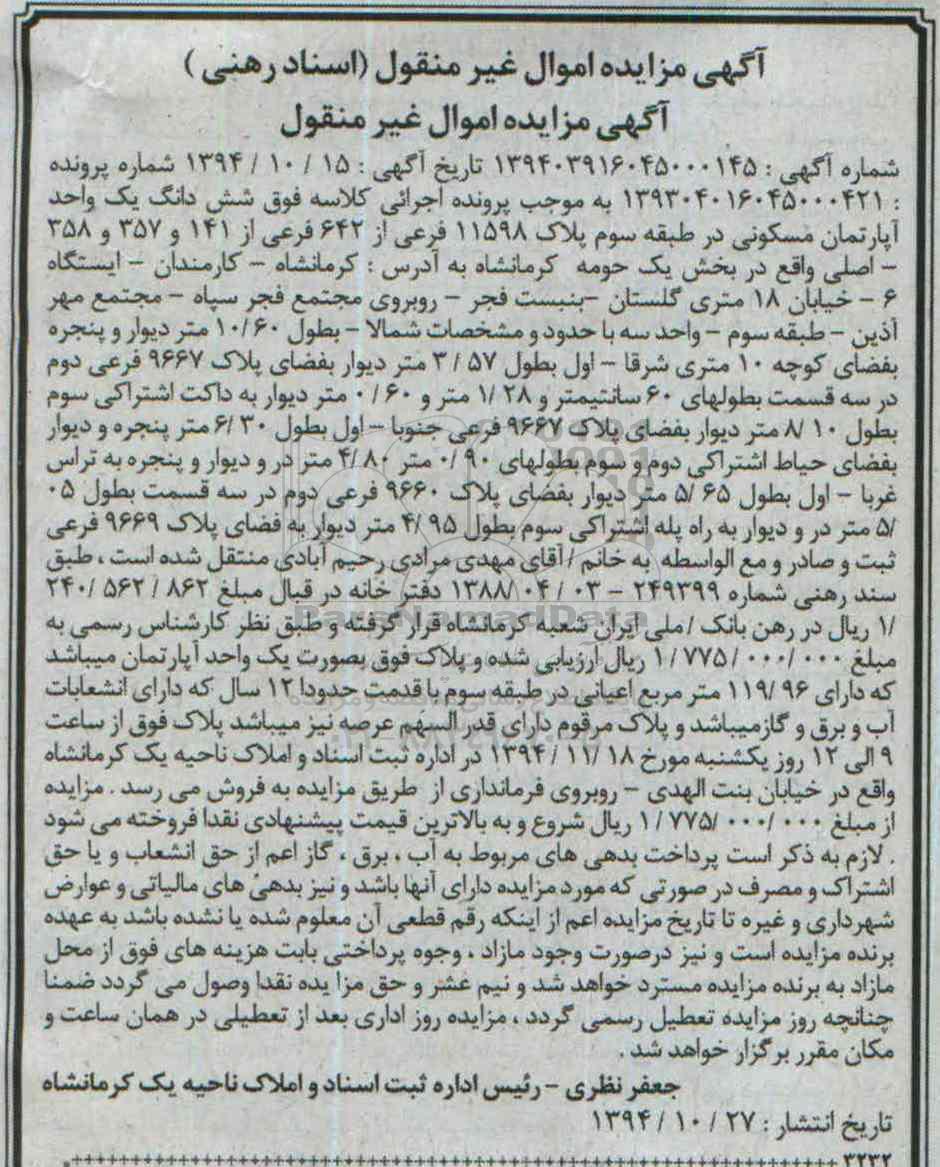 آگهی مزایده اموال غیر منقول (اسناد رهنی )
آگهی مزایده اموال غیر منقول
شماره آگهی : ۱۳۹۴۰۳۹۱۶۰۴۵۰۰۰۱۴۵ تاریخ آگهی : ۱۵ / ۱۰ / ۱۳۹۴ شماره پرونده
: ۱۳۹۳۰۴۰۱۶۰۴۵۰۰۰۴۲۱ به موجب پرونده اجرائی کلاسه فوق شش دانگ یک واحد
آپارتمان مسکونی در طبقه سوم پلاک ۱۱۵۹۸ فرعی از ۶۴۲ فرعی از ۱۴۱ و ۳۵۷ و ۳۵۸
- اصلی واقع در بخش یک حومه کرمانشاه به آدرس : کرمانشاه - کارمندان - ایستگاه
۶ - خیابان ۱۸ متری گلستان -بنبست فجر - روبروی مجتمع فجر سپاه - مجتمع مهر
آذین - طبقه سوم - واحد سه با حدود و مشخصات شمالا - بطول ۱۰/۶۰ متر دیوار و پنجره
بفضای کوچه ۱۰ متری شرقا - اول بطول ۵۷ / ۳ متر دیوار بفضای پلاک ۹۶۶۷ فرعی دوم
در سه قسمت بطولهای ۶۰ سانتیمتر و ۲۸ /۱ متر و ۶۰ /۰ متر دیوار به داکت اشتراکی سوم
بطول ۱۰ /۸ متر دیوار بفضای پلاک ۹۶۶۷ فرعی جنوبا - اول بطول ۳۰ /۶ متر پنجره و دیوار
بفضای حیاط اشتراکی دوم و سوم بطولهای ۹۰ /۰ متر ۸۰ /۴ متر در و دیوار و پنجره به تراس
غربا - اول بطول ۶۵ /۵ متر دیوار بفضای پلاک ۹۶۶۰ فرعی دوم در سه قسمت بطول ۰۵
/۵ متر در و دیوار به راه پله اشتراکی سوم بطول ۹۵ /۴ متر دیوار به فضای پلاک ۹۶۶۹ فرعی
ثبت و صادر و مع الواسطه به خانم / آقای مهدی مرادی رحیم آبادی منتقل شده است ، طبق
سند رهنی شماره ۲۴۹۳۹۹ - ۰۳ / ۰۴ /۱۳۸۸ دفتر خانه در قبال مبلغ ۸۶۲ / ۵۶۲ /۲۴۰
/۱ ریال در رهن بانک / ملی ایران شعبه کرمانشاه قرار گرفته و طبق نظر کارشناس رسمی به
مبلغ ۰۰۰ /۰۰۰ / ۷۷۵ / ۱ ریال ارزیابی شده و پلاک فوق بصورت یک واحد آپارتمان میباشد
که دارای ۹۶ /۱۱۹ متر مربع اعیانی در طبقه سوم با قدمت حدودا ۱۲ سال که دارای انشعابات
آب و برق و گازمیباشد و پلاک مرقوم دارای قدر السهم عرصه نیز میباشد پلاک فوق از ساعت
۹ الی ۱۲ روز یکشنبه مورخ ۱۸ /۱۱ / ۱۳۹۴ در اداره ثبت اسناد و املاک ناحیه یک کرمانشاه
واقع در خیابان بنت الهدی - روبروی فرمانداری از طریق مزایده به فروش می رسد . مزایده
از مبلغ ۰۰۰ /۰۰۰ /۷۷۵ / ۱ ریال شروع و به بالاترین قیمت پیشنهادی نقدا فروخته می شود
. لازم به ذکر است پرداخت بدهی های مربوط به آب ، برق ، گاز اعم از حق انشعاب و یا حق
اشتراک و مصرف در صورتی که مورد مزایده دارای آنها باشد و نیز بدهی های مالیاتی و عوارض
شهرداری و غیره تا تاریخ مزایده اعم از اینکه رقم قطعی آن معلوم شده یا نشده باشد به عهده
برنده مزایده است و نیز درصورت وجود مازاد ، وجوه پرداختی بابت هزینه های فوق از محل
مازاد به برنده مزایده مسترد خواهد شد و نیم عشر و حق مزا یده نقدا وصول می گردد ضمنا
چنانچه روز مزایده تعطیل رسمی گردد ، مزایده روز اداری بعد از تعطیلی در همان ساعت و
مکان مقرر برگزار خواهد شد .
جعفر نظری - رئیس اداره ثبت اسناد و املاک ناحیه یک کرمانشاه
تاریخ انتشار : ۲۷ / ۱۰ / ۱۳۹۴
۳۲۳۲
ParsNamadData